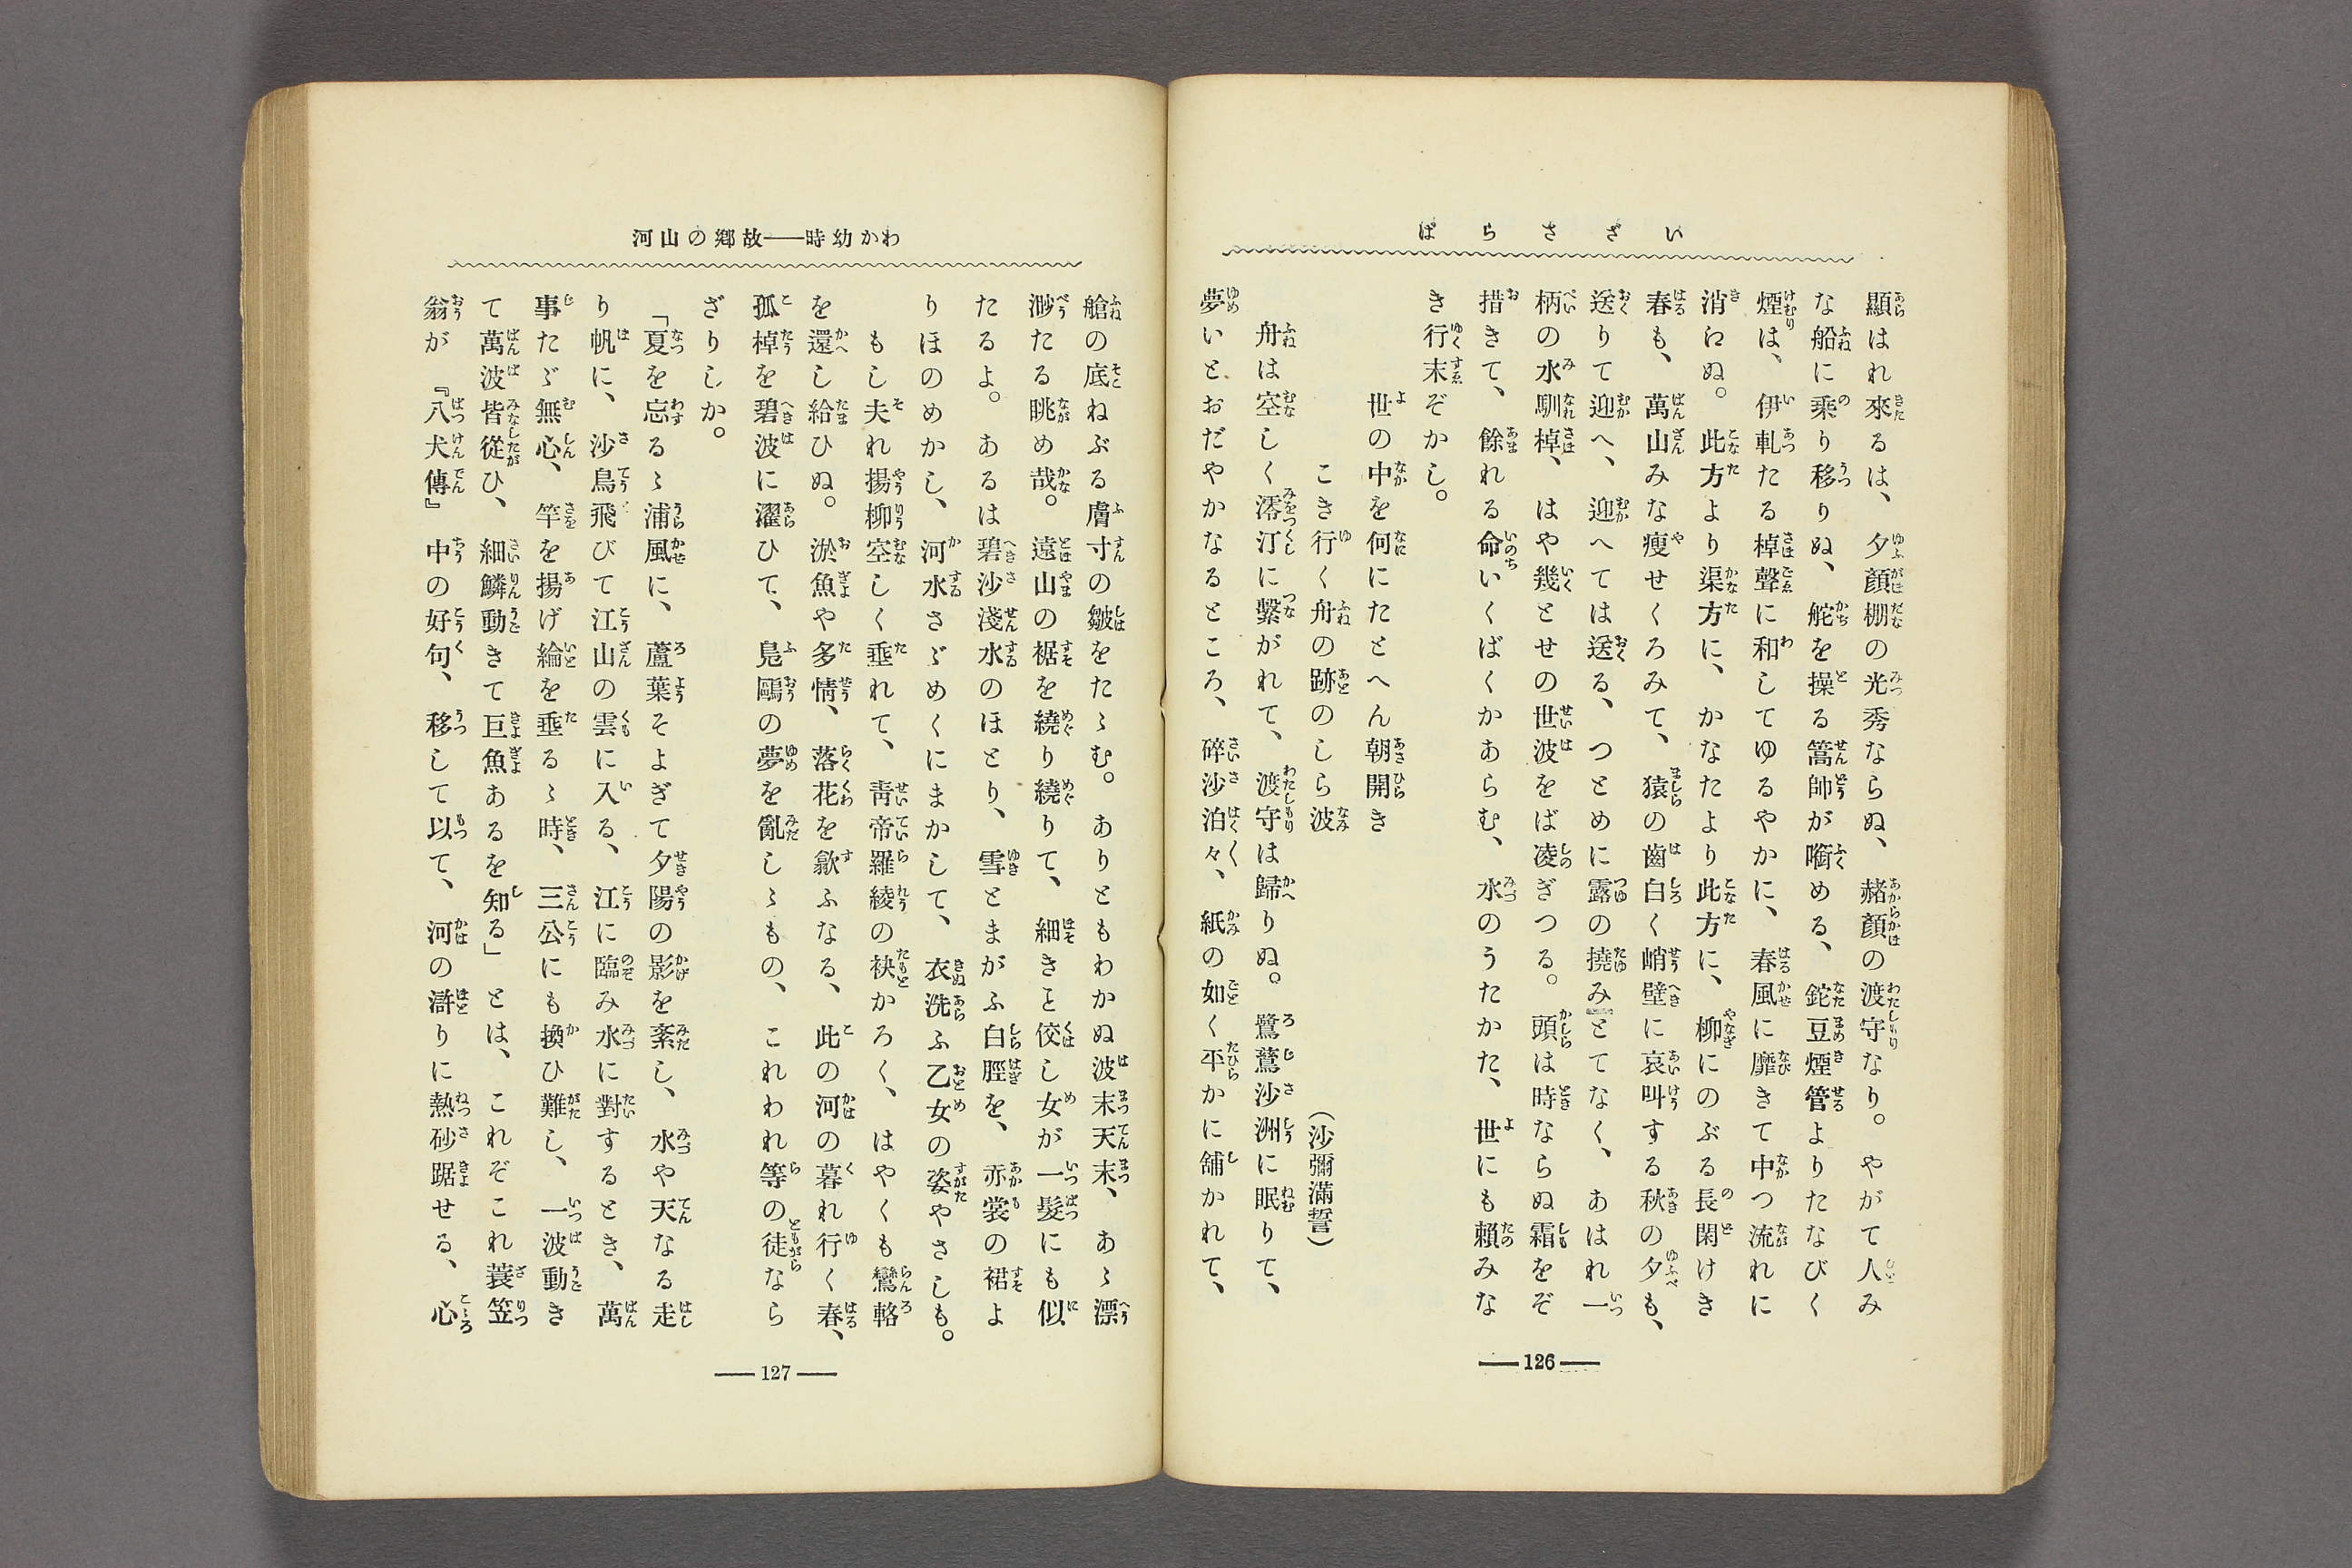 いざさらば
顯はれ來るは、夕顏棚の光秀ならぬ、赭顏の渡守なり。やがて人み
な船に乘り移りぬ、舵を操る篙師が啣める、鉈豆煙管よりたなびく
煙は、伊軋たる棹聲に和してゆるやかに、春風に靡きて中つ流れに
消ねぬ。此方より渠方に、かなたより此方に、柳にのぶる長閑けき
春も、萬山みな瘦せくろみて、猿の齒白く峭壁に哀叫する秋の夕も、
送りて迎へ、迎へては送る、つとめに露の撓みとてなく、あはれ一
柄の水馴棹、はや幾とせの世波をば凌ぎつる。頭は時ならぬ霜をぞ
措きて、餘れる命いくばくかあらむ、水のうたかた、世にも賴みな
き行末ぞかし。
世の中を何にたとへん朝開き
こき行く舟の跡のしら波
(沙彌滿誓)
舟は空しく澪汀に繫がれて、渡守は歸りぬ。鷺鶿沙洲に眠りて、
夢いとおだやかなるところ、碎沙泊々、紙の如く平かに舖かれて、
126
わか幼時——故鄕の山河
艙の底ねぶる膚寸の皺をたゝむ。ありともわかぬ波末天末、あゝ漂
渺たる眺め哉。遠山の裾を繞り繞りて、細きこと佼し女が一髮にも似
たるよ。あるは碧沙淺水のほとり、雪とまがふ白脛を、赤裳の裙よ
りほのめかし、河水さゞめくにまかして、衣洗ふ乙女の姿やさしも。
もし夫れ揚柳空しく垂れて、靑帝羅綾の袂かろく、はやくも鸞輅
を還し給ひぬ。淤魚や多情、落花を歙ふなる、此の河の暮れ行く春、
孤棹を碧波に濯ひて、鳧鷗の夢を亂しゝもの、これわれ等の徒なら
ざりしか。
「夏を忘るゝ浦風に、蘆葉そよぎて夕陽の影を紊し、水や天なる走
り帆に、沙鳥飛びて江山の雲に入る、江に臨み水に對するとき、萬
事たゞ無心、竿を揚げ綸を垂るゝ時、三公にも換ひ難し、一波動き
て萬波皆從ひ、細鱗動きて巨魚あるを知る」とは、これぞこれ蓑笠
翁が『八犬傳』中の好句、移して以て、河の滸りに熱砂踞せる、心
127